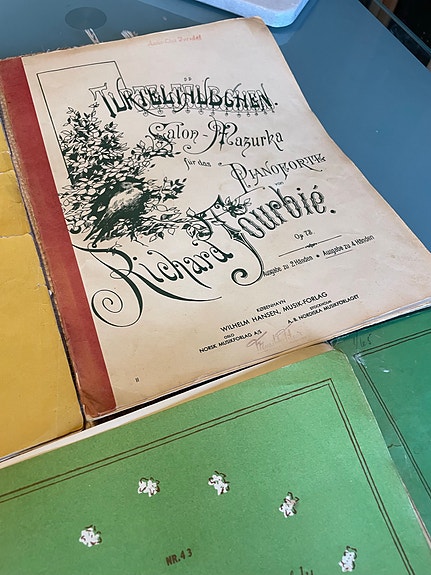 TURTELTÄUBCHEN.
Salon-Mazurka
für das
PIANOFORTE
von
Richard Fourbié.
Op. 73.
Ausgabe zu 2 Händen • Ausgabe zu 4 Händen
KØBENHAVN
WILHELM HANSEN, MUSIK-FORLAG
OSLO
STOCKHOLM
NORSK MUSIKFORLAG A/S
A. B. NORDISKA MUSIKFÖRLAGET
11
NR. 43